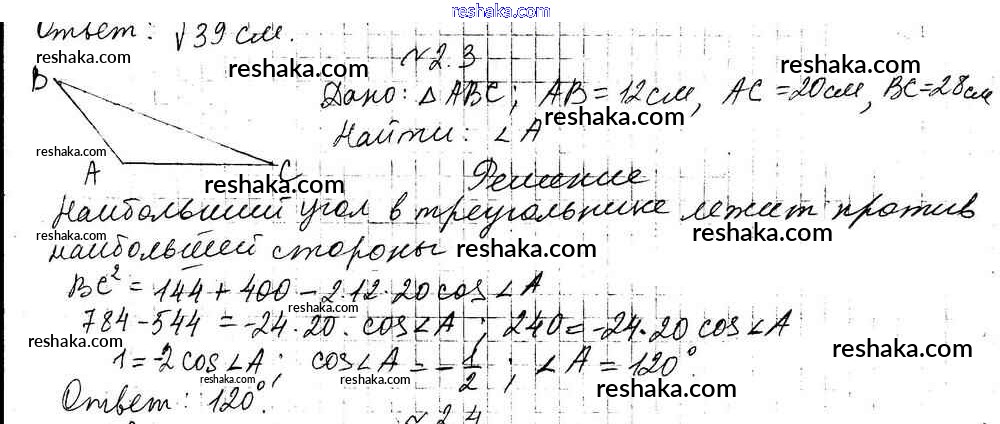 reshaka.com reshaka.com reshaka.com
Ответ: √39 см.
reshaka.com
№2.3
reshaka.com
reshaka.com
B
Дано: △ABC; AB = 12см, AC = 20см, BC = 28см
reshaka.com
Найти: ∠A
reshaka.com
A C
reshaka.com
Решение
Наибольший угол в треугольнике лежит против
reshaka.com
reshaka.com
наибольшей стороны
reshaka.com
BC² = 144 + 400 - 2·12·20 cos ∠A
reshaka.com
784 - 544 = -24·20· cos∠A ; 240 = -24·20 cos ∠A
reshaka.com
reshaka.com
1 = -2 cos∠A ; cos∠A = -1/2 ; ∠A = 120°
reshaka.com reshaka.com
reshaka.com
Ответ: 120°.
№2.4